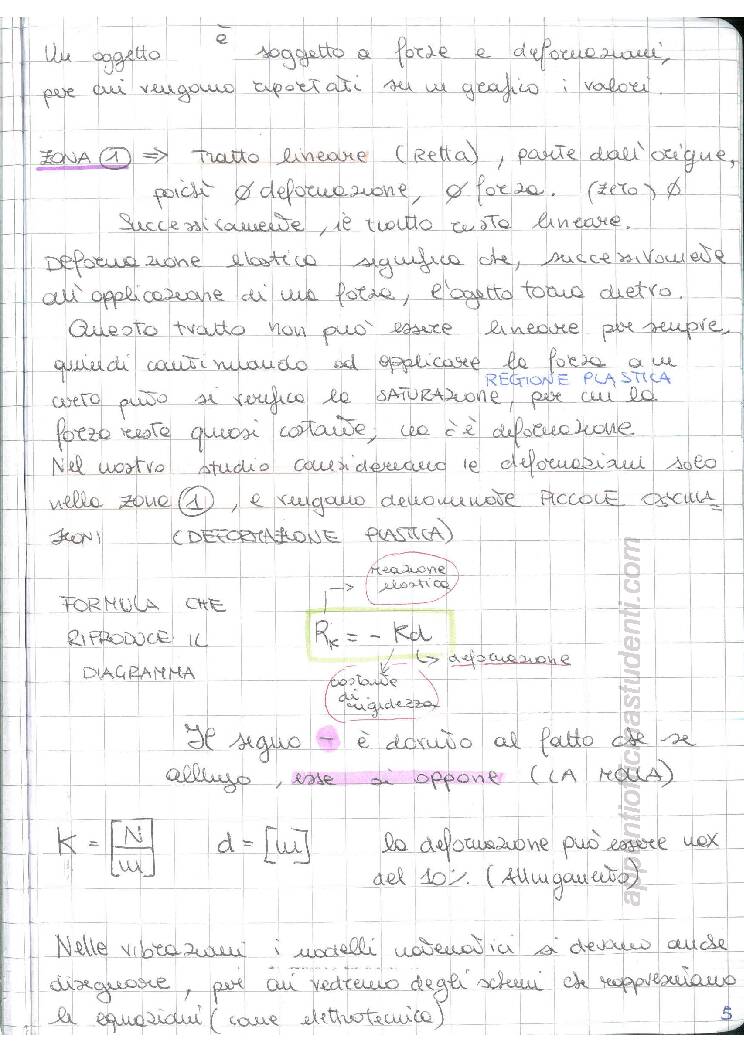 Un oggetto è soggetto a forze e deformazioni,
per cui vengono riportati su un grafico i valori.
ZONA 1 ⇒ Tratto lineare (Retta), parte dall'origine,
poichè ∅ deformazione, ∅ forza. (zero) ∅
Successivamente, il tratto resta lineare.
Deformazione elastica significa che, successivamente
all'applicazione di una forza, l'oggetto torna dietro.
Questo tratto non può essere lineare per sempre,
quindi continuando ad applicare la forza a un
REGIONE PLASTICA
certo punto si verifica la SATURAzione, per cui la
forza resta quasi costante, ma c'è deformazione.
Nel nostro studio consideriamo le deformazioni solo
nella zona 1, e vengono denominate PICCOLE OSCILLA=
ZIONI (DEFORMAZIONE PLASTICA)
reazione
elastica
FORMULA CHE
RIPRODUCE IL
DIAGRAMMA
Rk = - Kd
↳ deformazione
costante
di
rigidezza
Il segno - è dovuto al fatto che se
allungo, essa si oppone (LA MOLLA)
K = [N]/[m] d = [m] la deformazione può essere max
del 10%. (Allungamento)
Nelle vibrazioni i modelli matematici si devono anche
disegnare, per cui vedremo degli schemi che rappresentano
le equazioni (come elettrotecnica)
5
appuntioficinastudenti.com